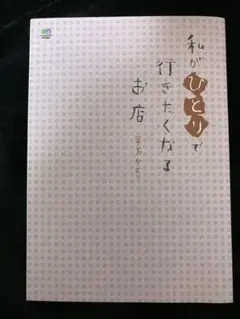 私がひとりで
行きたくなる
お店